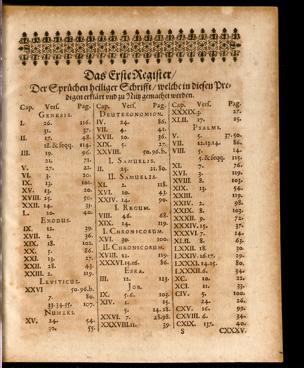 Das Erste Register/
Der Sprüchen heiliger Schrifft/ welche in diesen Pre-
digen erklärt und zu Nutz gemachet werden.
Cap. Vers. Pag.
GENESIS.
I. 26. 116.
31. 37.
II. 17. 48.
18. & seqq. 114.
III. 19. 96.
21. 71.
V. 27. 22.
VI. 3. 20.
IX. 13.
XV. 1.
XVIII. 25. 50.
XXII. 14.
L. 20. 40.
EXODUS.
IX. 12. 39.
XII. 2. 36.
XIX. 18. 102.
XX. 5. 86.
XXI. 13. 27.
XXII. 28. 43.
XXXIII. 2. 119.
LEVITICUS.
XXVI. 50. 96. b.
7. 80.
33. 34. 35. 107.
NUMERI.
XV. 24. 54.
30. 55.
Cap. Vers. Pag.
DEUTERONOMIUM.
IV. 24. 86.
VII. 4. 41.
XVII. 10. 36.
XIX. 5. 27.
XXVIII. 50. 96. b.
I. SAMUELIS.
II. 25. 21. 80.
II. SAMUELIS.
XI. 2. 118.
XVI. 10. 43.
XXIV. 14. 90.
I. REGUM.
VIII. 46. 68.
XIX. 14. 119.
I. CHRONICORUM.
XVI. 30. 100.
II. CHRONICORUM.
XVIII. 12. 119.
XXXVI. 15. 16.
ESRA.
III. 12. 123.
JOB.
IX. 5. 6. 103.
XIV. 1.
5. 24. 28.
XXVI. 7. 28. 98.
XXXVIII. 11. 39.
Cap. Vers. Pag.
XXXIX. 3. 27.
XLII. 17. 25.
PSALMI.
V. 5. 37. 50.
VII. 12. 13. 14. 86.
VIII. 5. 14.
5. & seqq. 115.
XI. 7. 76.
XVI. 3. 119.
XVIII. 8. 103.
XIX. 13. 54.
XXIII. 119.
XXIV. 2. 98.
XXIX. 8. 103.
XXXIII. 9. 72.
XXXIV. 15. 37.
XXXV. 7. 24.
XLII. 8. 63.
LXXII. 18. 30.
LXXIV. 16. 17. 29.
LXXXI. 14. 15. 80.
LXXXII. 6. 34.
XC. 10. 22.
XCI. 11. 33.
CIV. 5. 100.
24. 26.
CXV. 16. 99.
CXVIII. 6. 34.
CXIX. 137. 40.
S CXXXV.